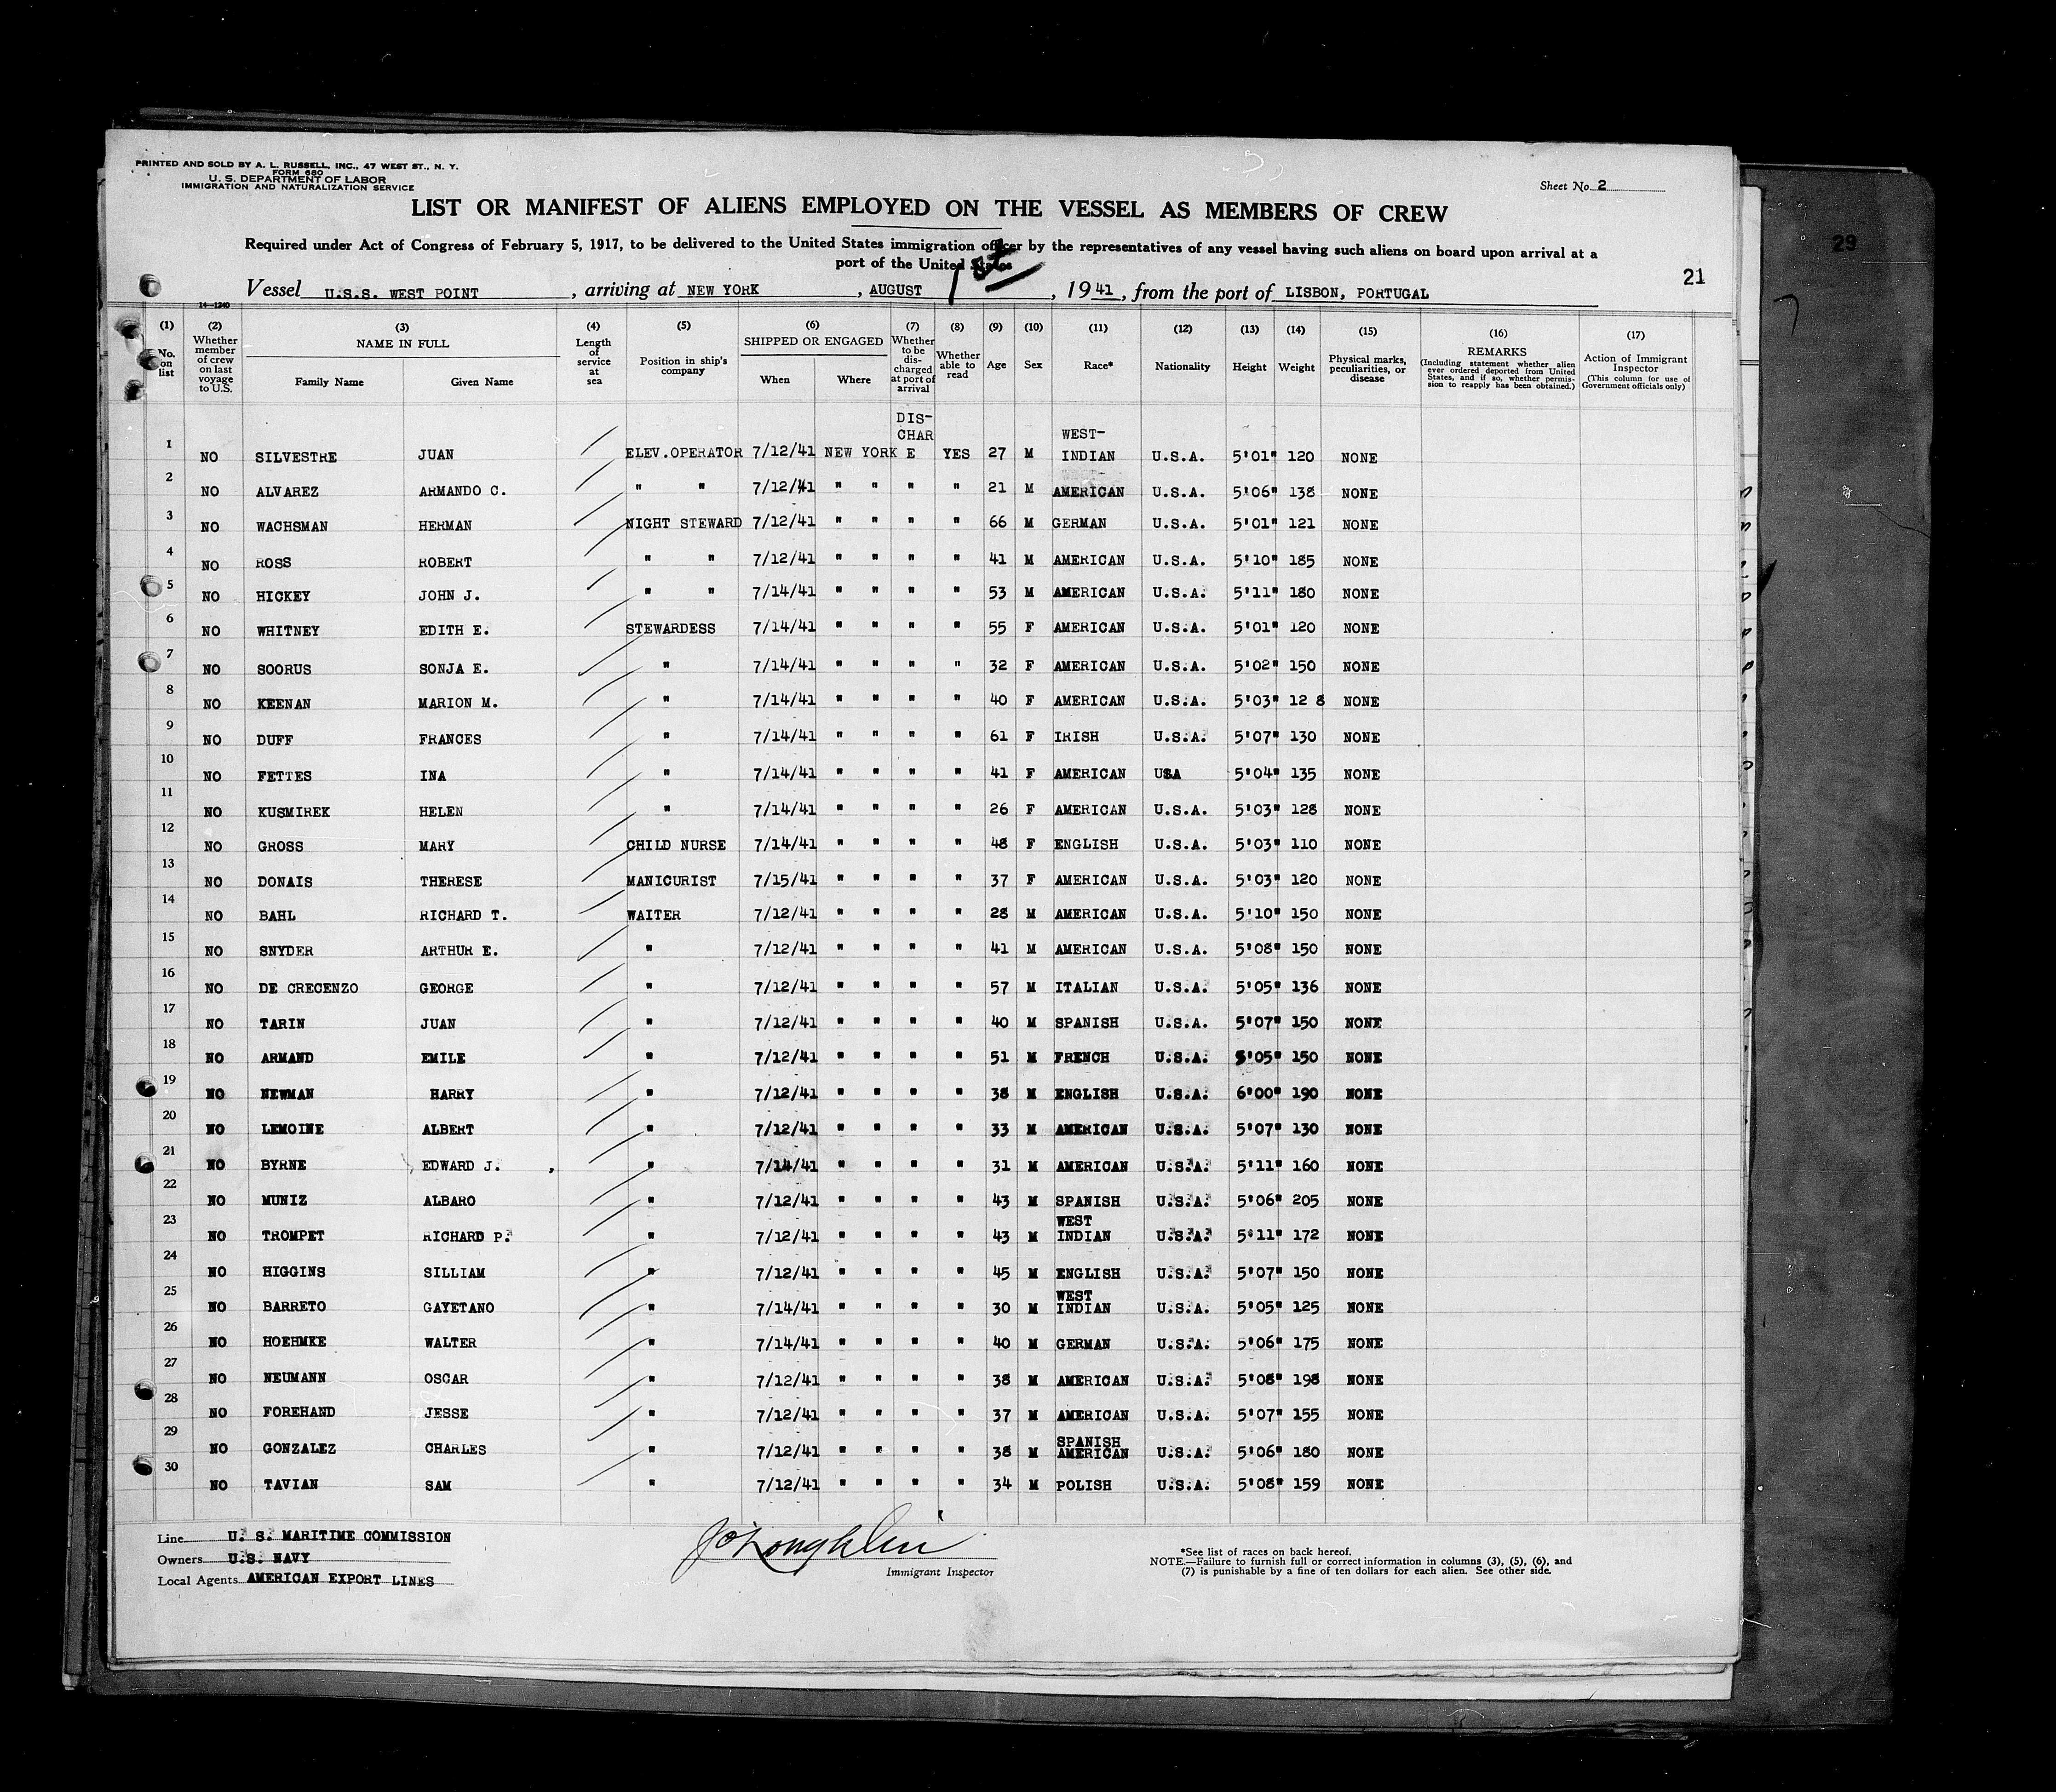 PRINTED AND SOLD BY A. L. RUSSELL, INC., 47 WEST ST., N. Y.
FORM 680
U. S. DEPARTMENT OF LABOR
IMMIGRATION AND NATURALIZATION SERVICE
Sheet No. 2
LIST OR MANIFEST OF ALIENS EMPLOYED ON THE VESSEL AS MEMBERS OF CREW
Required under Act of Congress of February 5, 1917, to be delivered to the United States immigration officer by the representatives of any vessel having such aliens on board upon arrival at a
port of the United States
21
29
Vessel U.S.S. WEST POINT, arriving at NEW YORK, AUGUST 1st, 1941, from the port of LISBON, PORTUGAL
14-1240
(1) (2) (3) (4) (5) (6) (7) (8) (9) (10) (11) (12) (13) (14) (15) (16) (17)
No. on list
Whether member of crew on last voyage to U.S.
NAME IN FULL
Family Name Given Name
Length of service at sea
Position in ship's company
SHIPPED OR ENGAGED
When Where
Whether to be discharged at port of arrival
Whether able to read
Age
Sex
Race*
Nationality
Height
Weight
Physical marks, peculiarities, or disease
REMARKS
(Including statement whether alien ever ordered deported from United States, and if so, whether permission to reapply has been obtained.)
Action of Immigrant Inspector
(This column for use of Government officials only)
DIS-
CHAR WEST-
1 NO SILVESTRE JUAN ELEV.OPERATOR 7/12/41 NEW YORK E YES 27 M INDIAN U.S.A. 5'01" 120 NONE
2 NO ALVAREZ ARMANDO C. " " 7/12/41 " " " " 21 M AMERICAN U.S.A. 5'06" 138 NONE
3 NO WACHSMAN HERMAN NIGHT STEWARD 7/12/41 " " " " 66 M GERMAN U.S.A. 5'01" 121 NONE
4 NO ROSS ROBERT " " 7/12/41 " " " " 41 M AMERICAN U.S.A. 5'10" 185 NONE
5 NO HICKEY JOHN J. " " 7/14/41 " " " " 53 M AMERICAN U.S.A. 5'11" 180 NONE
6 NO WHITNEY EDITH E. STEWARDESS 7/14/41 " " " " 55 F AMERICAN U.S.A. 5'01" 120 NONE
7 NO SOORUS SONJA E. " 7/14/41 " " " " 32 F AMERICAN U.S.A. 5'02" 150 NONE
8 NO KEENAN MARION M. " 7/14/41 " " " " 40 F AMERICAN U.S.A. 5'03" 12 8 NONE
9 NO DUFF FRANCES " 7/14/41 " " " " 61 F IRISH U.S.A. 5'07" 130 NONE
10 NO FETTES INA " 7/14/41 " " " " 41 F AMERICAN USA 5'04" 135 NONE
11 NO KUSMIREK HELEN " 7/14/41 " " " " 26 F AMERICAN U.S.A. 5'03" 128 NONE
12 NO GROSS MARY CHILD NURSE 7/14/41 " " " " 48 F ENGLISH U.S.A. 5'03" 110 NONE
13 NO DONAIS THERESE MANICURIST 7/15/41 " " " " 37 F AMERICAN U.S.A. 5'03" 120 NONE
14 NO BAHL RICHARD T. WAITER 7/12/41 " " " " 28 M AMERICAN U.S.A. 5'10" 150 NONE
15 NO SNYDER ARTHUR E. " 7/12/41 " " " " 41 M AMERICAN U.S.A. 5'08" 150 NONE
16 NO DE CRECENZO GEORGE " 7/12/41 " " " " 57 M ITALIAN U.S.A. 5'05" 136 NONE
17 NO TARIN JUAN " 7/12/41 " " " " 40 M SPANISH U.S.A. 5'07" 150 NONE
18 NO ARMAND EMILE " 7/12/41 " " " " 51 M FRENCH U.S.A. 5'05" 150 NONE
19 NO NEWMAN HARRY " 7/12/41 " " " " 38 M ENGLISH U.S.A. 6'00" 190 NONE
20 NO LEMOINE ALBERT " 7/12/41 " " " " 33 M AMERICAN U.S.A. 5'07" 130 NONE
21 NO BYRNE EDWARD J. " 7/14/41 " " " " 31 M AMERICAN U.S.A. 5'11" 160 NONE
22 NO MUNIZ ALBARO " 7/12/41 " " " " 43 M SPANISH U.S.A. 5'06" 205 NONE
23 NO TROMPET RICHARD P. " 7/12/41 " " " " 43 M WEST INDIAN U.S.A. 5'11" 172 NONE
24 NO HIGGINS SILLIAM " 7/12/41 " " " " 45 M ENGLISH U.S.A. 5'07" 150 NONE
25 NO BARRETO GAYETANO " 7/14/41 " " " " 30 M WEST INDIAN U.S.A. 5'05" 125 NONE
26 NO HOEHMKE WALTER " 7/14/41 " " " " 40 M GERMAN U.S.A. 5'06" 175 NONE
27 NO NEUMANN OSCAR " 7/12/41 " " " " 38 M AMERICAN U.S.A. 5'08" 198 NONE
28 NO FOREHAND JESSE " 7/12/41 " " " " 37 M AMERICAN U.S.A. 5'07" 155 NONE
29 NO GONZALEZ CHARLES " 7/12/41 " " " " 38 M SPANISH AMERICAN U.S.A. 5'06" 180 NONE
30 NO TAVIAN SAM " 7/12/41 " " " " 34 M POLISH U.S.A. 5'08" 159 NONE
Line U. S. MARITIME COMMISSION
Owners U.S. NAVY
Local Agents AMERICAN EXPORT LINES
J O'Loughlin
Immigrant Inspector
*See list of races on back hereof.
NOTE.—Failure to furnish full or correct information in columns (3), (5), (6), and
(7) is punishable by a fine of ten dollars for each alien. See other side.